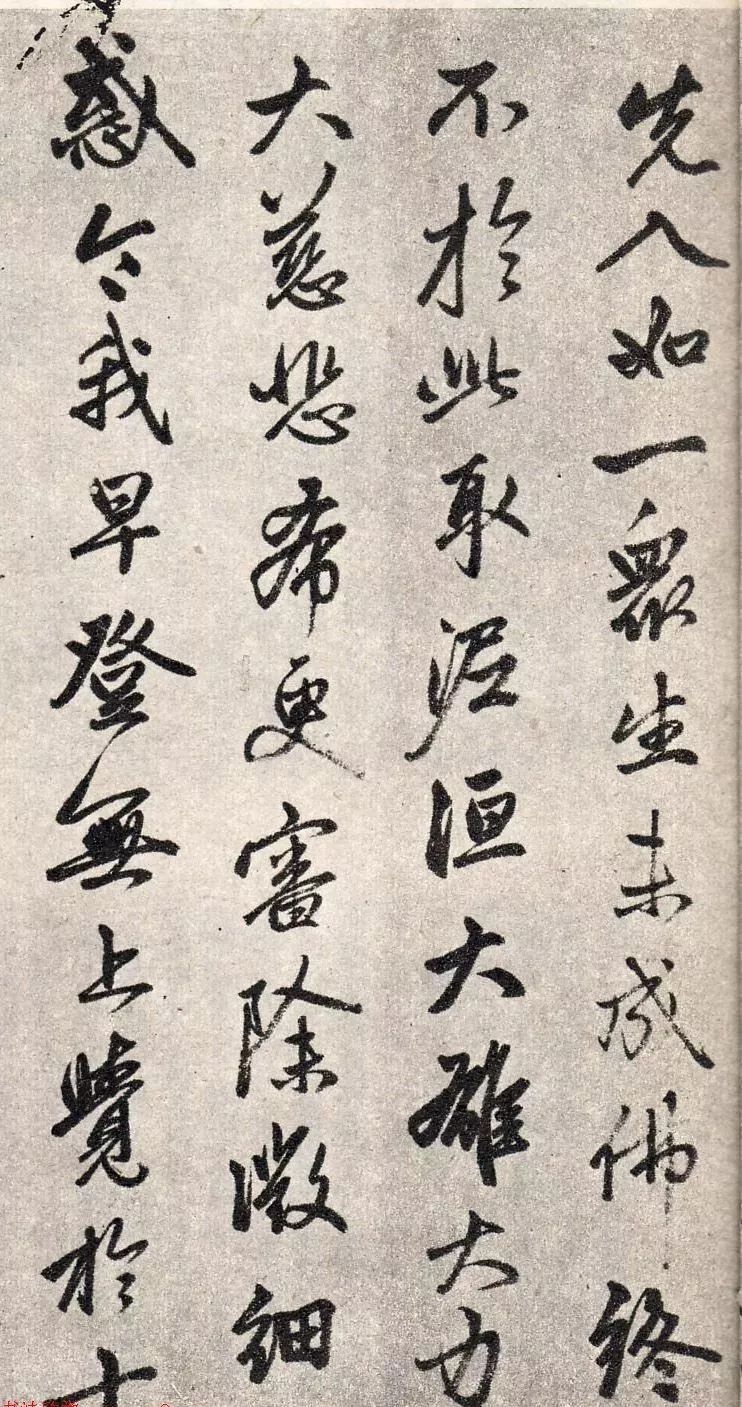 先入如一衆生未成佛終
不於此取泥洹大雄大力
大慈悲希更審除微細
惑令我早登無上覺於十